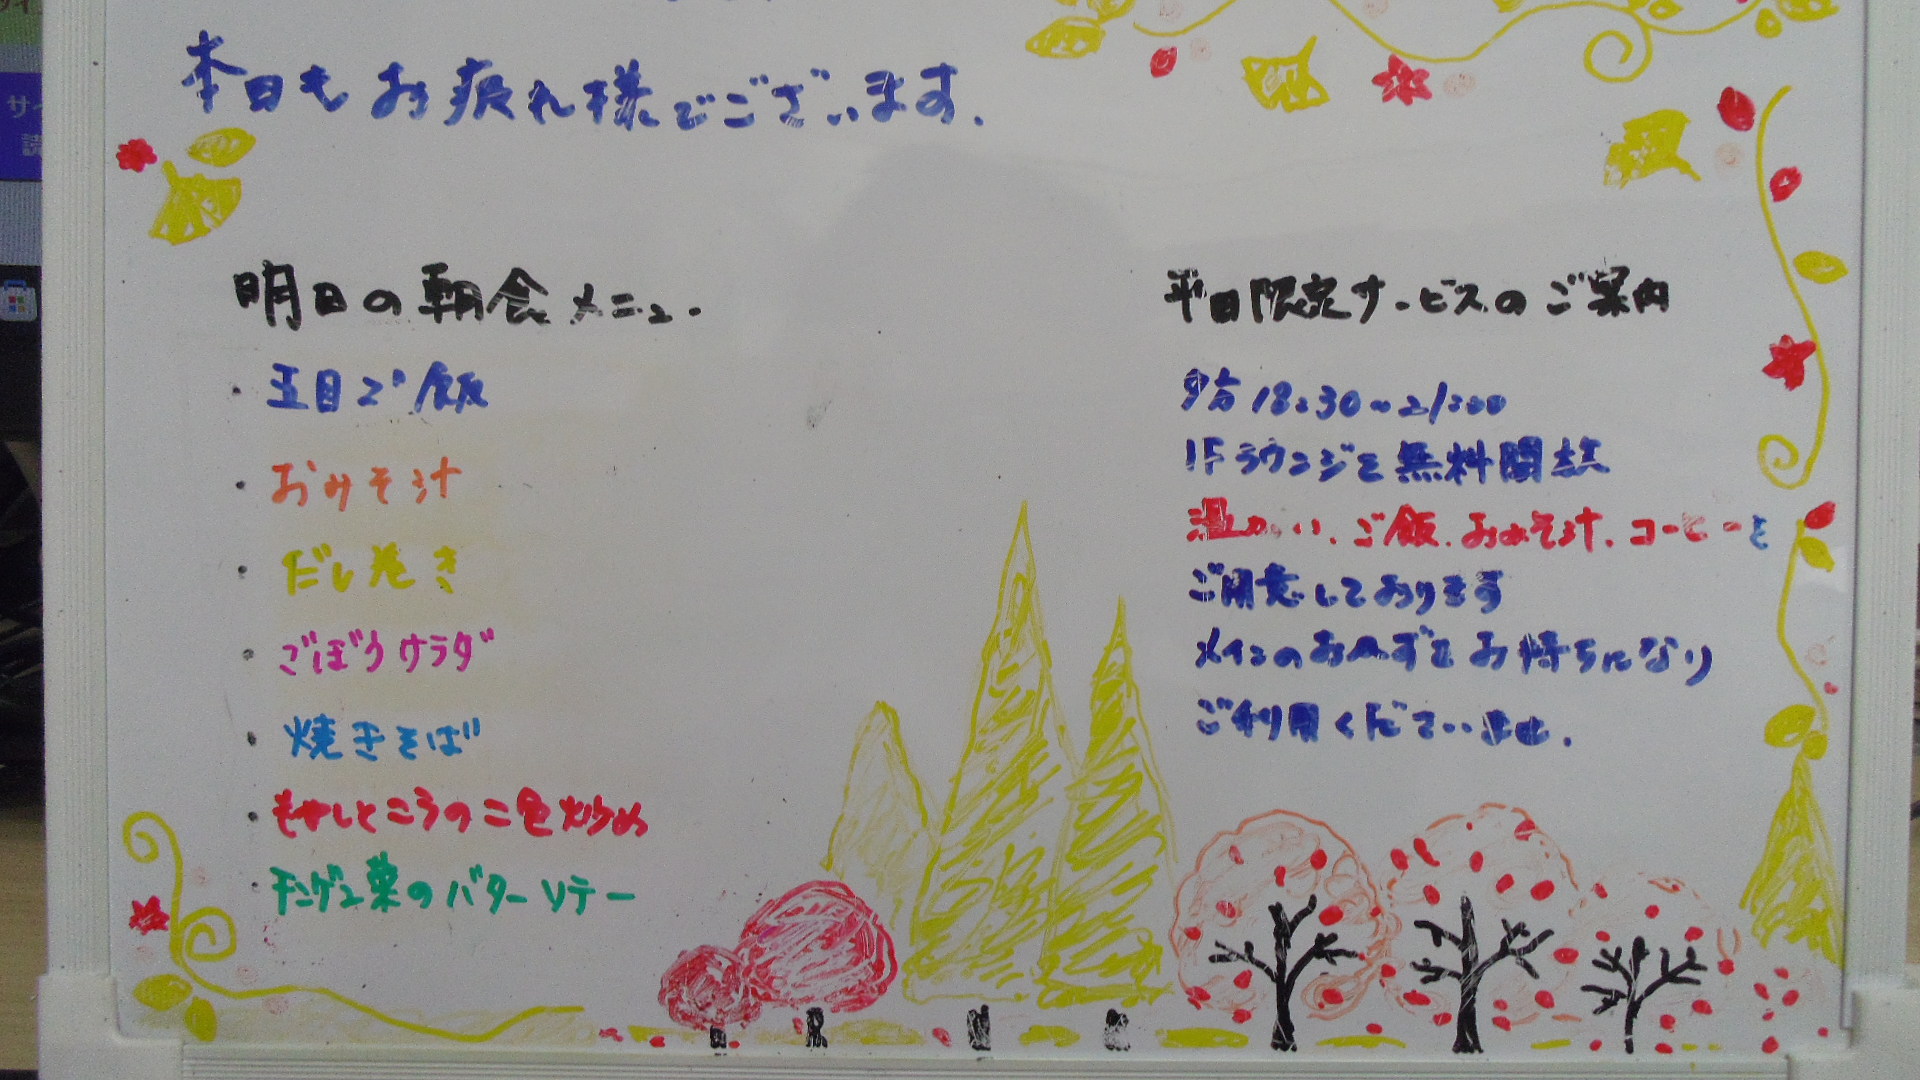 本日もお疲れ様でございます.
明日の朝食メニュー
・五目ご飯
・おみそ汁
・だし巻き
・ごぼうサラダ
・焼きそば
・もやしところの二色炒め
・チンゲン菜のバターソテー
平日限定サービスのご案内
夕方18:30~21:00
1Fラウンジを無料開放
温かい、ご飯、おみそ汁、コーヒーを
ご用意しております
メインのおかずをお持ちになり
ご利用くださいませ.
サイ
読